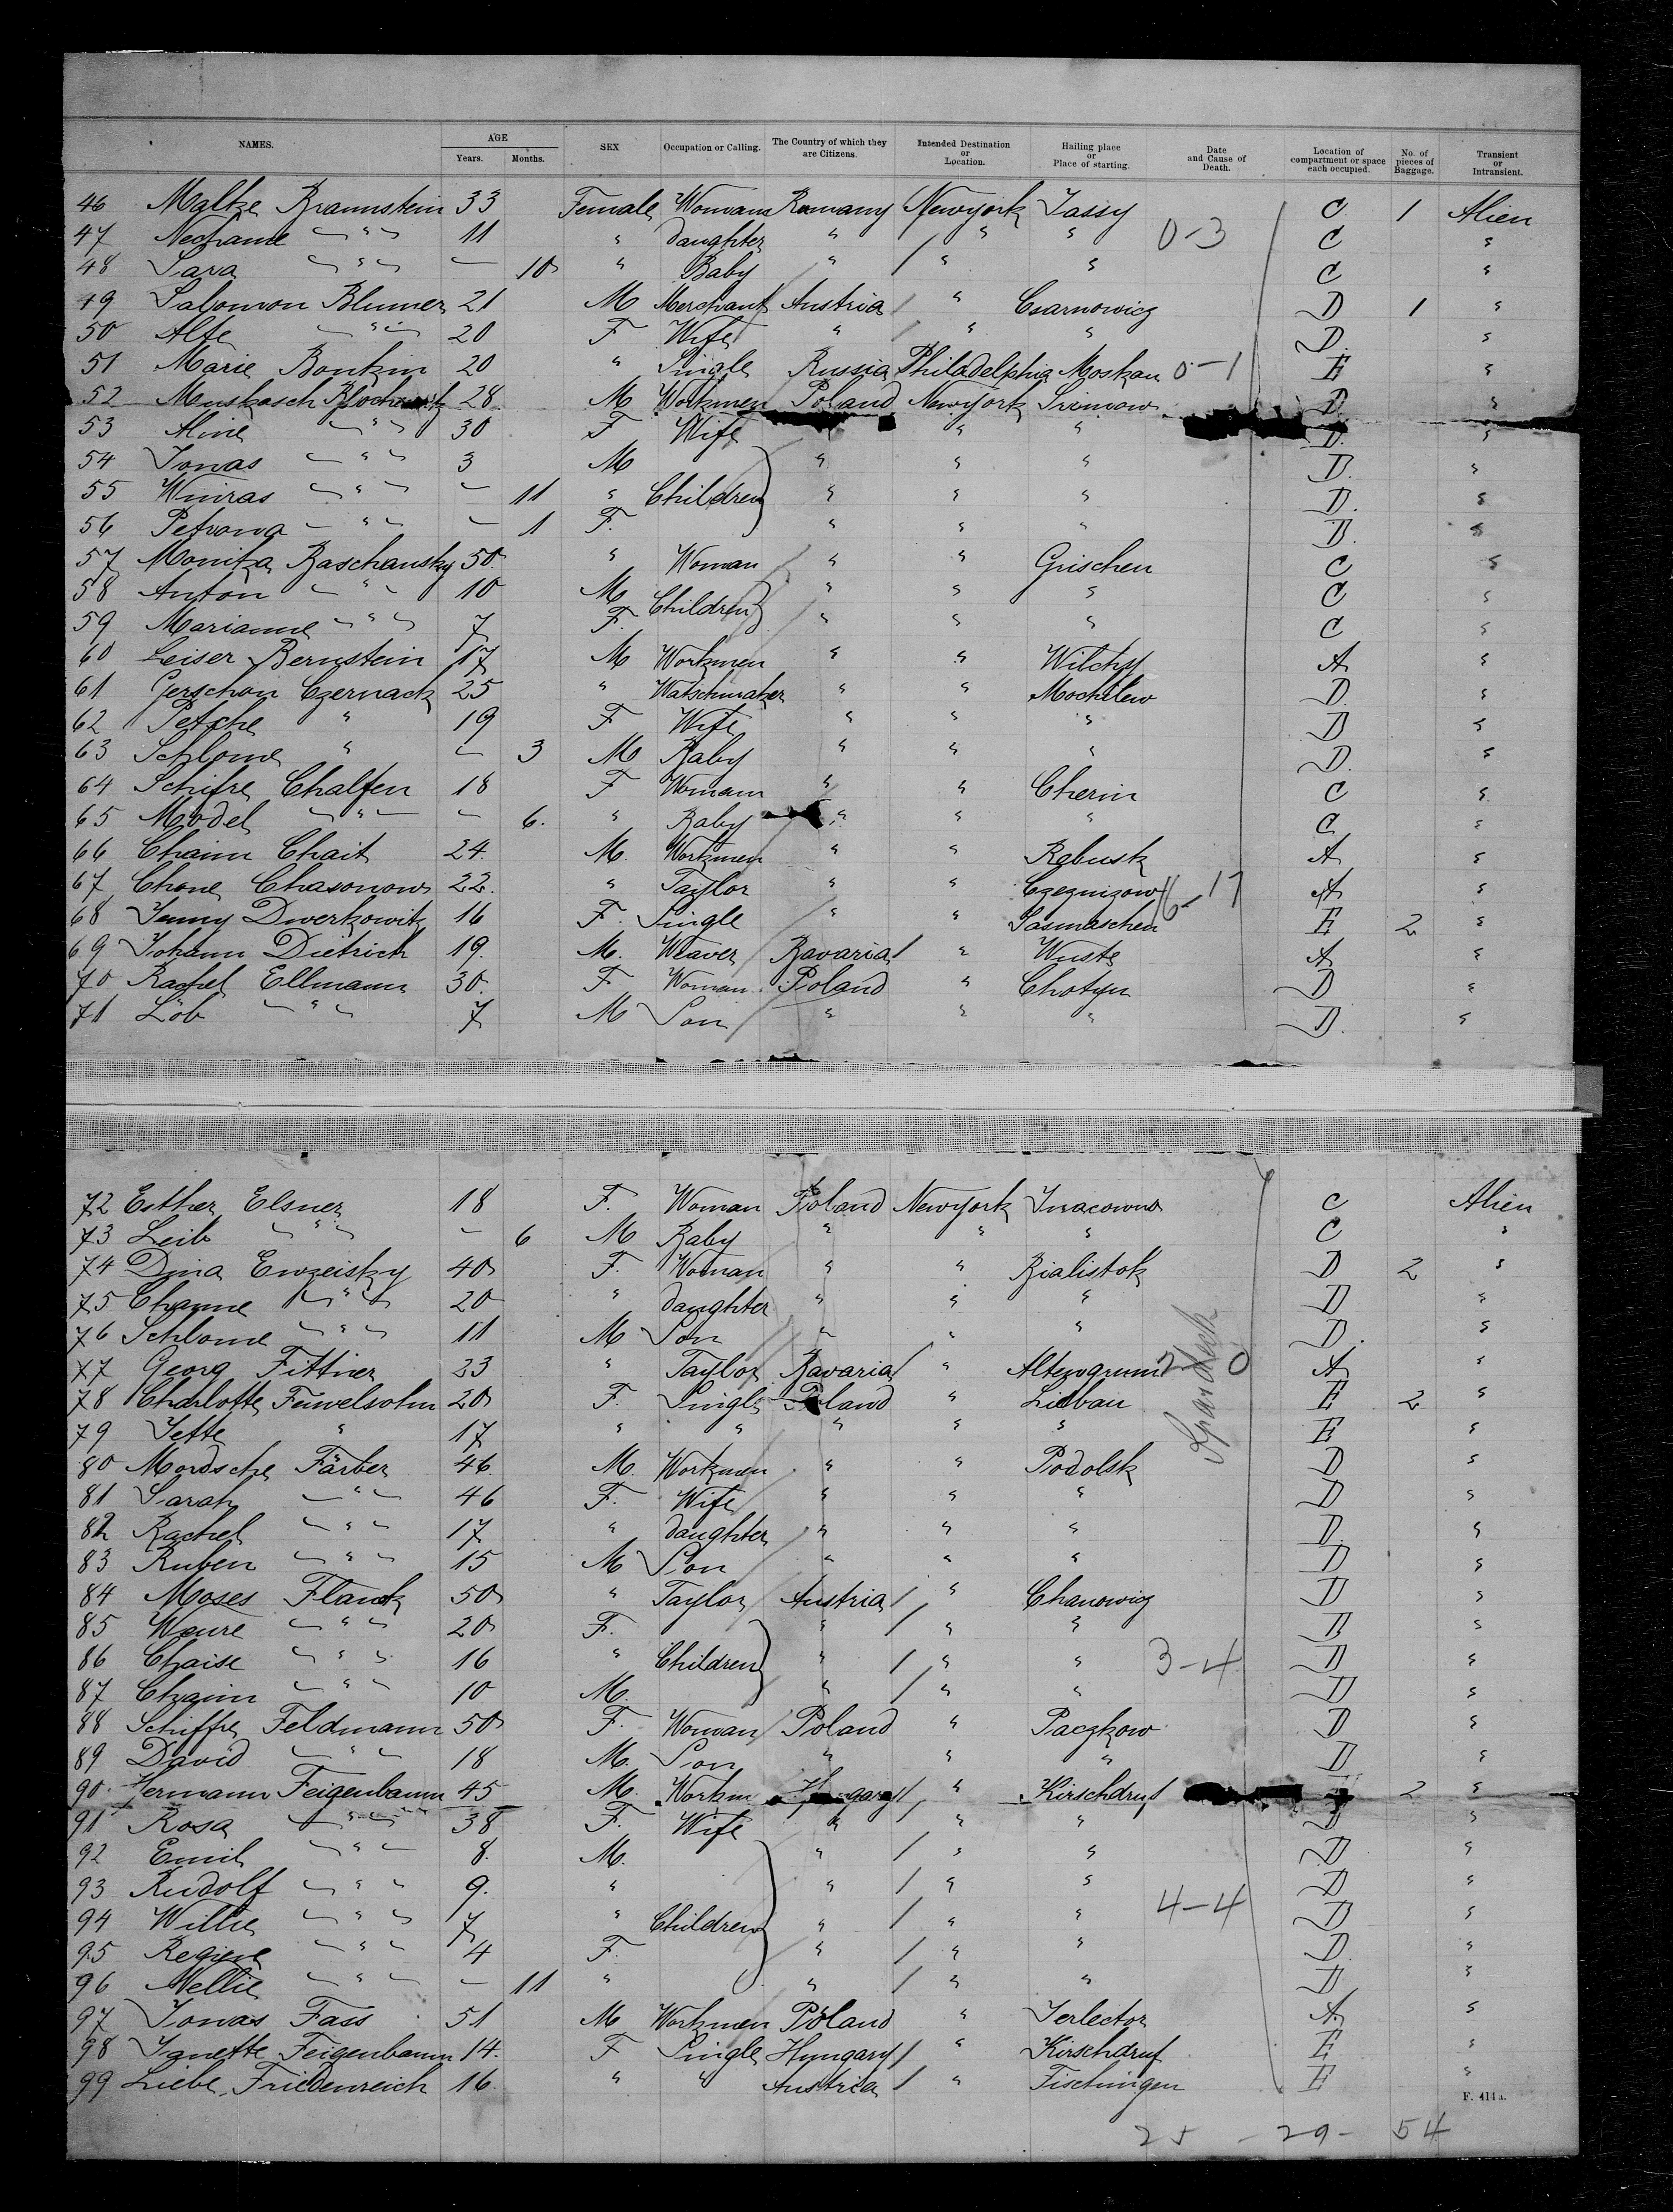 NAMES. AGE Years. Months. SEX Occupation or Calling. The Country of which they are Citizens. Intended Destination or Location. Hailing place or Place of starting. Date and Cause of Death. Location of compartment or space each occupied. No. of pieces of Baggage. Transient or Intransient.
46 Malke Braunstein 33 Female Womans Romany Newyork Jassy C 1 Alien
47 Nechame " 11 " daughter " " " 0-3 C "
48 Sara " — 10 " Baby " " " C "
49 Salomon Blumer 21 M Merchant Austria " Czarnowicz D 1 "
50 Alte " 20 F Wife " " " D. "
51 Marie Bonkin 20 " Single Russia Philadelphia Moskau 0-1 E "
52 Muskasch 28 M Workmen Poland Newyork Srimow D "
53 Aline " 30 F Wife " " D. "
54 Jonas " 3 M " " " D. "
55 Winras " — 11 " Children " " " D. "
56 Petrona " — 1 F. " " " D. "
57 Monika Raschansky 50 " Woman " " Grischen C "
58 Anton " 10 M Children " " " C "
59 Marianne " 7 F. " " " C "
60 Leiser Bernstein 17 M Workmen " " Wilchy A "
61 Gerschon Czernack 25 " Watschmaker " " Mochilew D "
62 Petsche " 19 F Wife " " " D "
63 Schlome " — 3 M Baby " " " D. "
64 Schifre Chalfen 18 F Womann " " Cherin C "
65 Model " — 6. " Baby " " " C "
66 Chaim Chait 24. M. Workmen " " Rabusk A "
67 Chone Chasonow 22. " Taylor " " 16-17 A "
68 Jenny Dwerkowitz 16 F. Single " " Sasmaschen E 2 "
69 Johann Dietrich 19. M. Weaver Bavaria " Wuste A "
70 Rachel Ellmann 30. F Woman Poland " Chotyn D "
71 Löb " 7 M Son " " " D. "
72 Esther Elsner 18 F. Woman Poland Newyork C Alien
73 Leib " — 6 M Baby " " " C "
74 Dina Enzeisky 40 F. Woman " " Bialistok D 2 "
75 Channe " 20 " daughter " " " D "
76 Schlome " 11 M Son " " " D. "
77 Georg Fittner 23 " Taylor Bavaria " Altengrum 2 0 A "
78 Charlotte Feiwelsohn 20 F. Single Poland " Liebau E 2 "
79 Jette " 17 " " " " " E "
80 Mordsche Färber 46. M. Workmen " " Podolsk D "
81 Sarah " 46 F. Wife " " " D "
82 Rachel " 17 " daughter " " " D "
83 Ruben " 15 M Son " " " D "
84 Moses Flanck 50 " Taylor Austria " Chanowicz D "
85 " 20 F. " " " D "
86 Chaise " 16 " Children " " " 3-4 D "
87 Chaim " 10 M. " " " D "
88 Schiffre Feldmann 50 F. Woman Poland " Paczkow D "
89 David " 18 M. Son " " " D "
90 Hermann Feigenbaum 45 M. Workm " Kirschdruf 2 "
91 Rosa " 38 F. Wife " " " D "
92 Emil " 8. M. " " " D "
93 Rudolf " 9. " " " " D "
94 Willie " 7 " Children " " " 4-4 D "
95 Regine " 4 F. " " " D "
96 Nellie " — 11 " " " " D "
97 Jonas Fass 51 M Workmen Poland " Jerlector A. "
98 Janette Feigenbaum 14. F Single Hungary " Kirschdruf E "
99 Liebe Friedenreich 16. " " Austria " Fischingen E "
F. 414a.
25 - 29 - 54